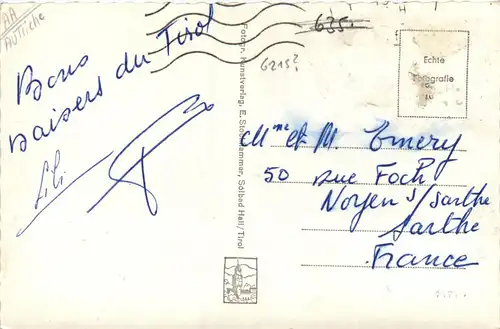 AA
AUTRICHE
Bons
baisers du Tirol
Lili
635.
6215?
Echte
Fotografie
Fotogr. Kunstverlag, E. Stockhammer, Solbad Hall/Tirol
Mme et M. Emery
50 rue Foch
Noyen s/sarthe
Sarthe
France